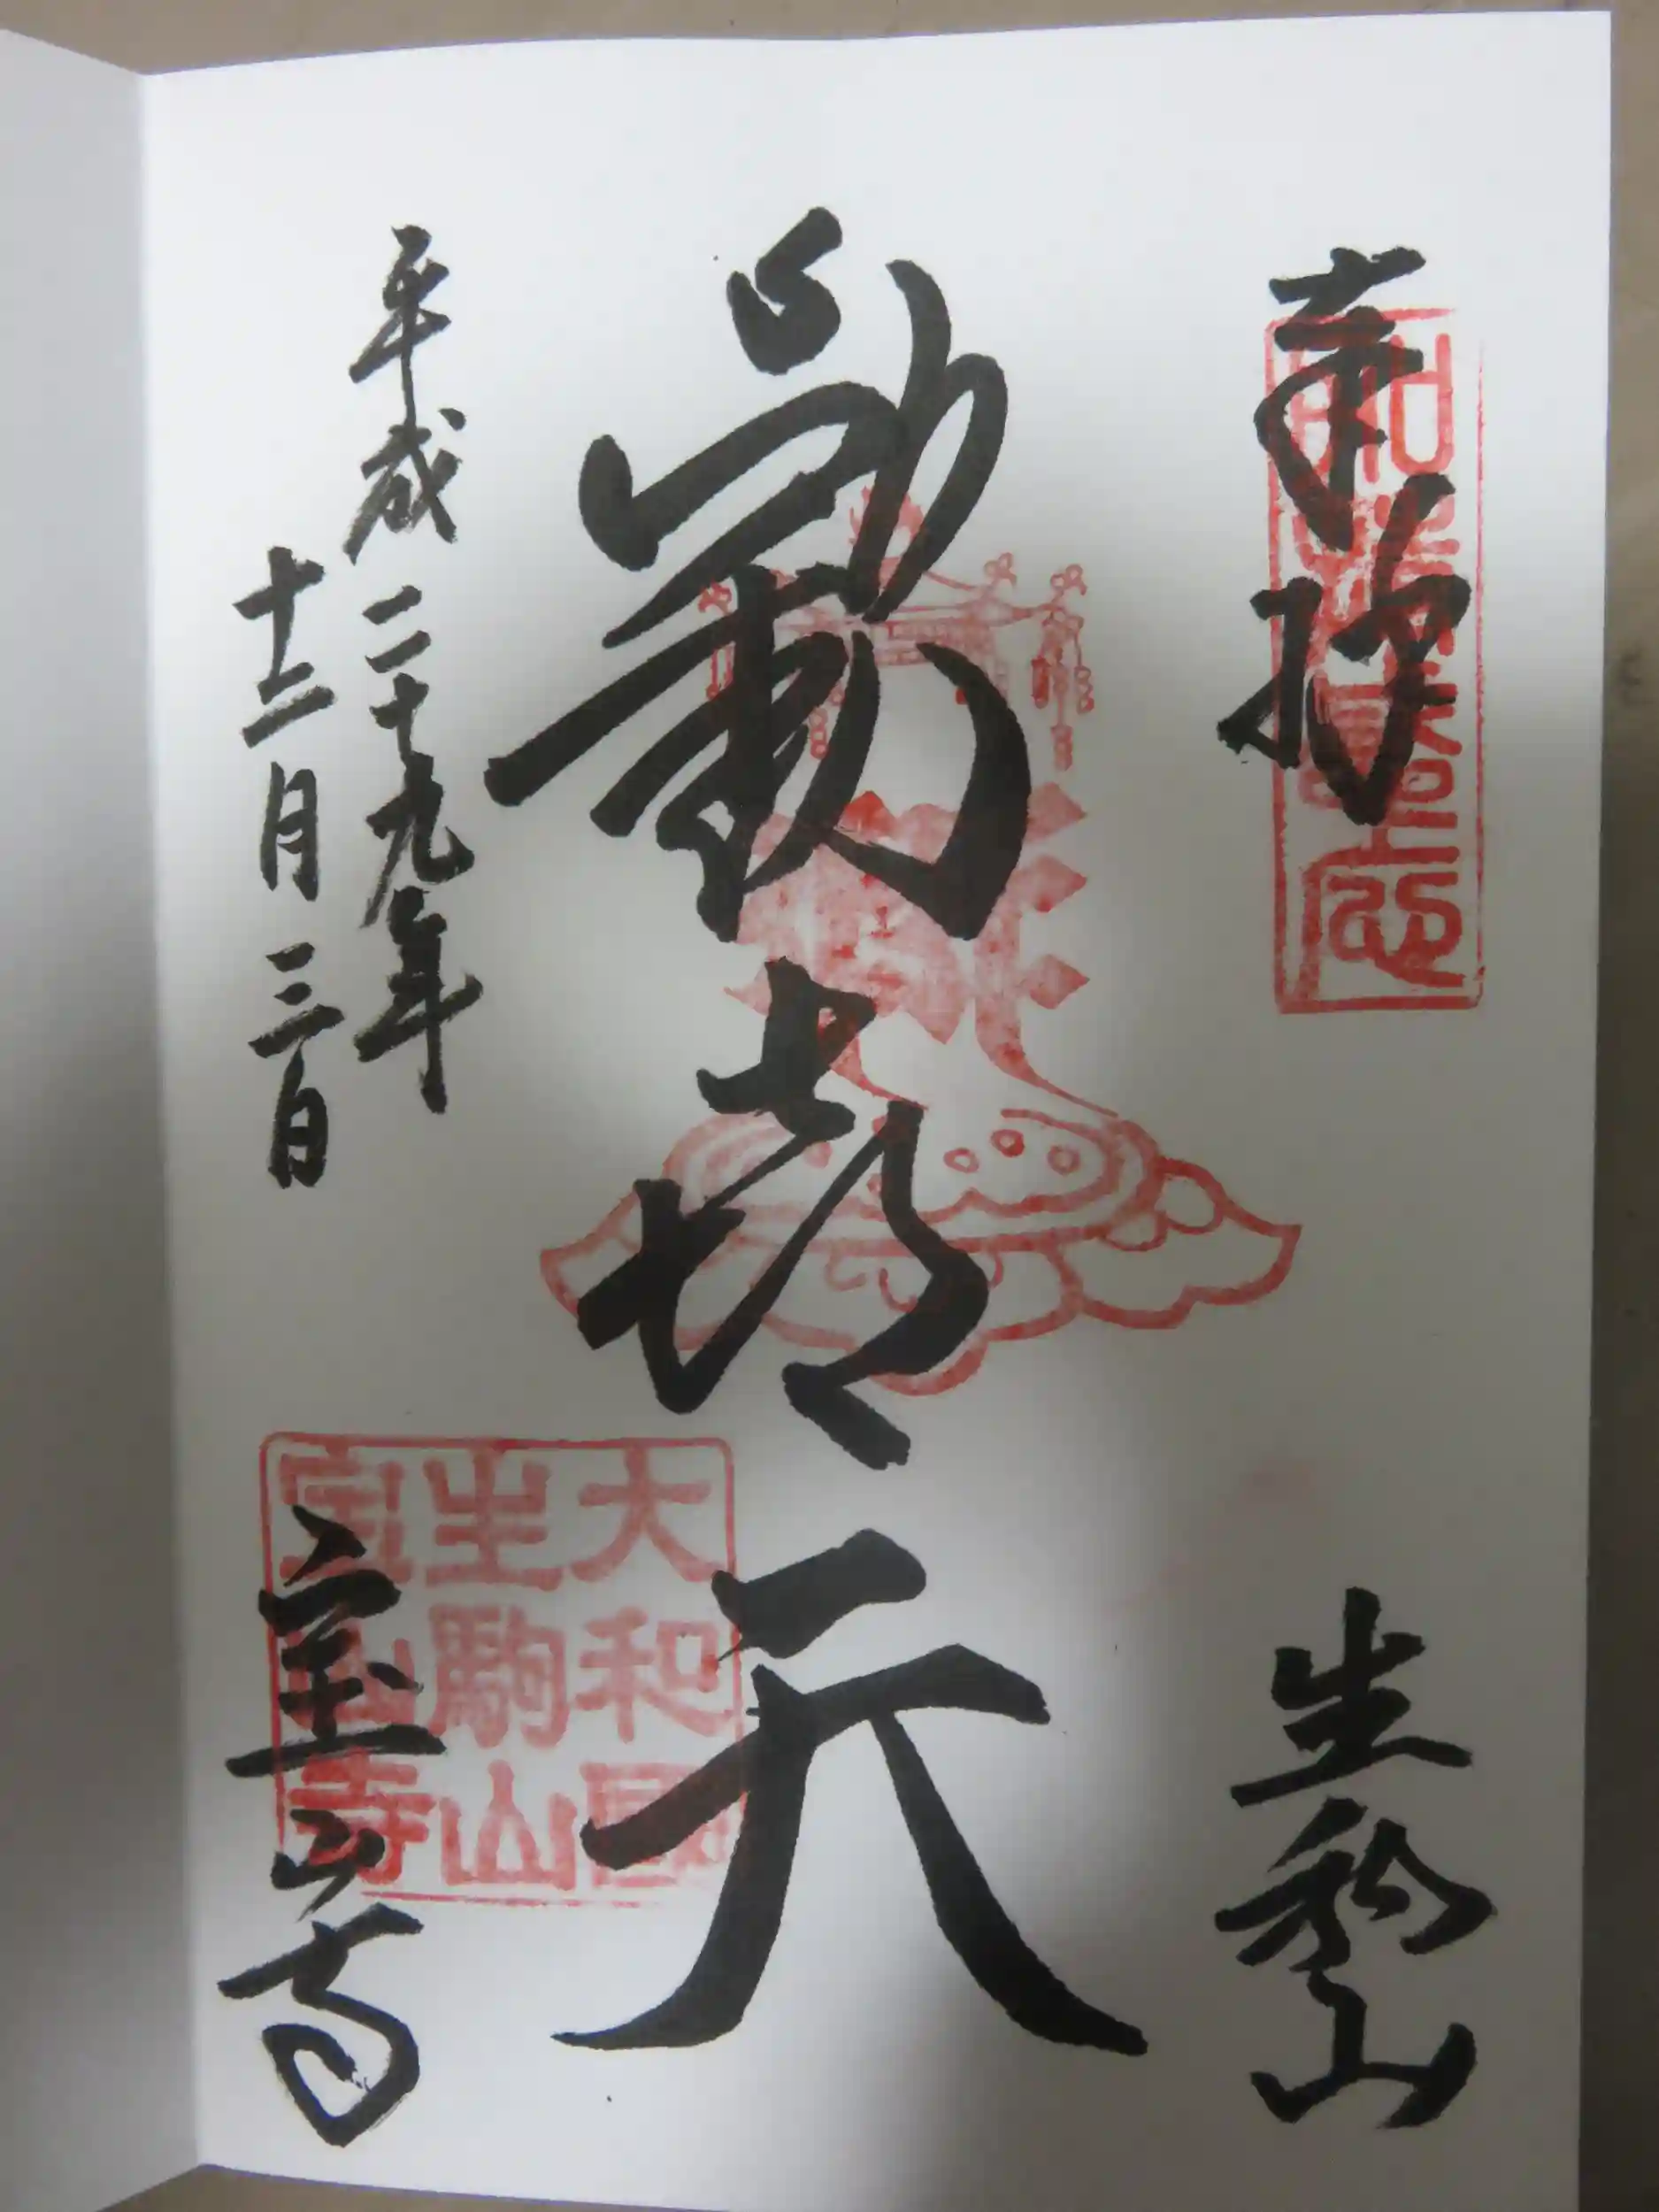 奉拝
生駒山
歓喜天
平成二十九年
十二月三日
宝山寺
大和國
生駒山
寳山寺